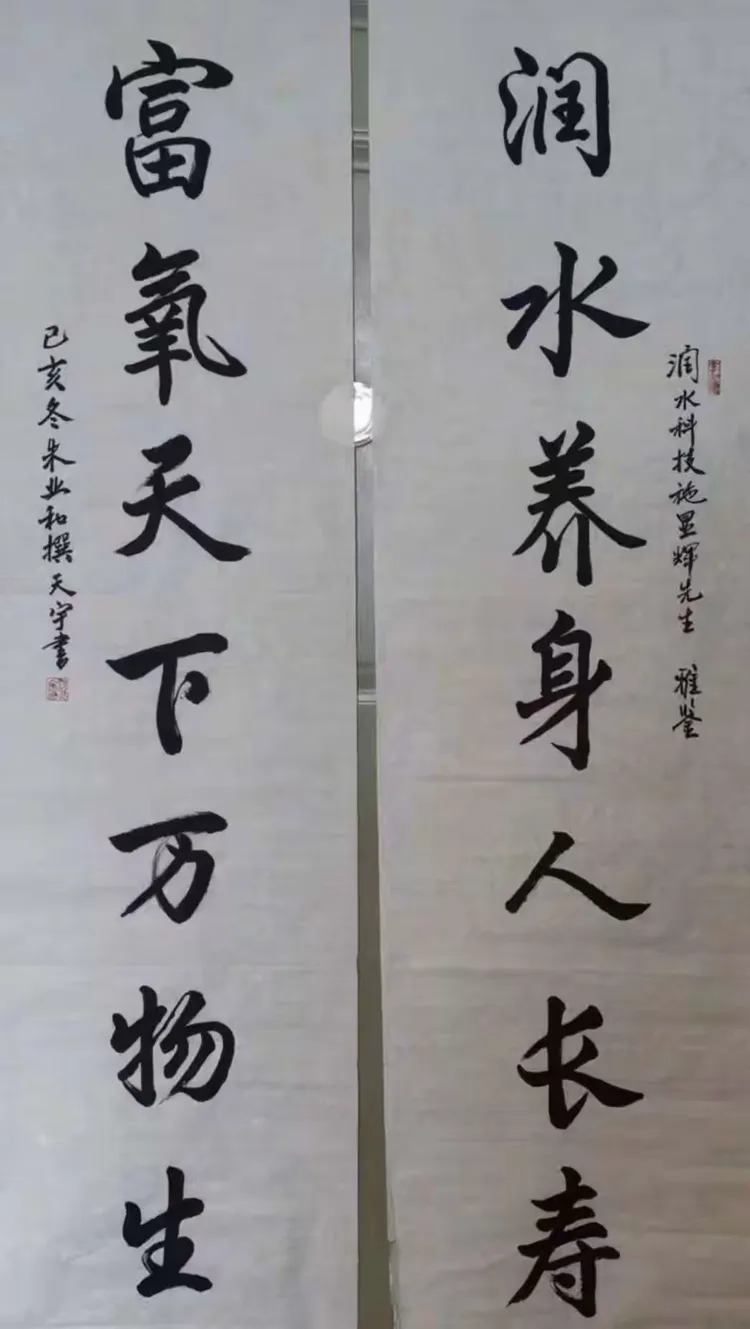 润水科技施显辉先生 雅鉴
润水养身人长寿
富氧天下万物生
己亥冬朱业和撰天宇书